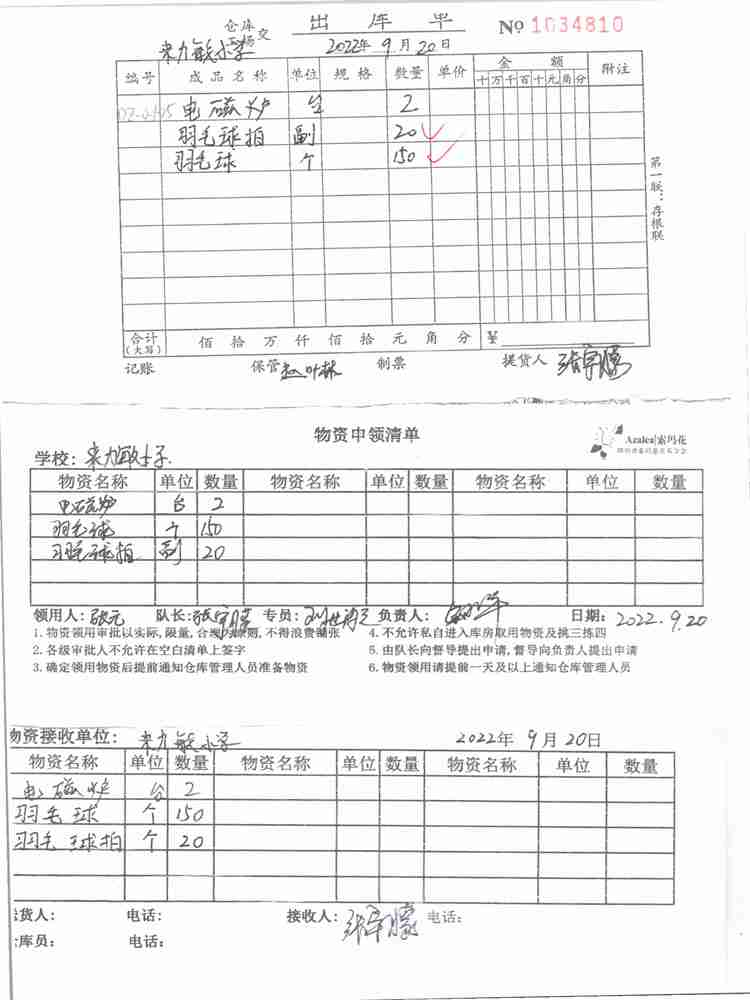 出 库 单
仓库
交
№ 1034810
来九敏小学
2022年 9月 20日
编号 成品名称 单位 规格 数量 单价 金额 附注
十万千百十元角分
电磁炉 台 2
羽毛球拍 副 20
羽毛球 个 150
第一联：存根联
合计（大写） 佰 拾 万 仟 佰 拾 元 角 分 ¥
记账 保管 制票 提货人
物资申领清单
Azalea|索玛花
学校：来九敏小学
物资名称 单位 数量 物资名称 单位 数量 物资名称 单位 数量
电磁炉 台 2
羽毛球 个 150
羽毛球拍 副 20
领用人：张元 队长： 专员： 负责人： 日期：2022.9.20
1. 物资领用审批以实际,限量,合理为原则,不得浪费铺张 4. 不允许私自进入库房取用物资及挑三拣四
2. 各级审批人不允许在空白清单上签字 5. 由队长向督导提出申请,督导向负责人提出申请
3. 确定领用物资后提前通知仓库管理人员准备物资 6. 物资领用请提前一天及以上通知仓库管理人员
物资接收单位：来九敏小学 2022年 9月 20日
物资名称 单位 数量 物资名称 单位 数量 物资名称 单位 数量
电磁炉 台 2
羽毛球 个 150
羽毛球拍 个 20
货人： 电话： 接收人： 电话：
库员： 电话：